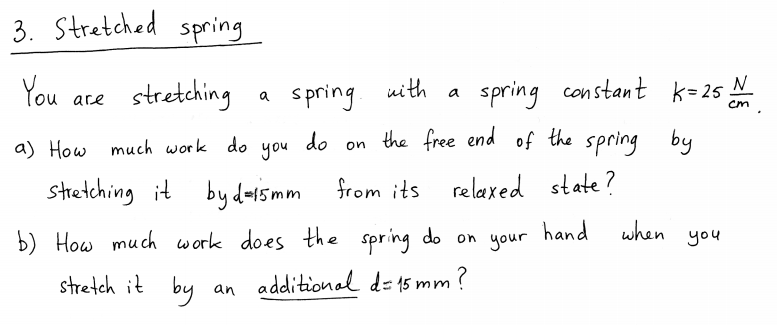 3. Stretched spring
You are stretching a spring with a spring constant k=25 N/cm.
a) How much work do you do on the free end of the spring by
stretching it by d=15mm from its relaxed state?
b) How much work does the spring do on your hand when you
stretch it by an additional d=15mm?